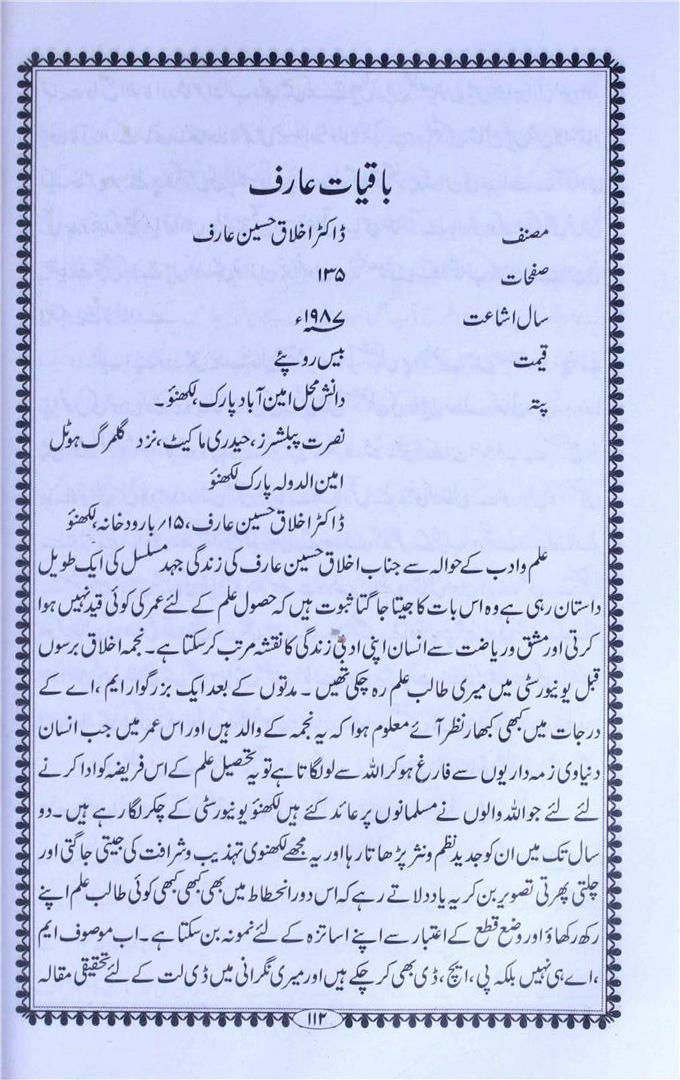 باقیات عارف
مصنف ڈاکٹر اخلاق حسین عارف
صفحات ۱۳۵
سال اشاعت ۱۹۸۷ء
قیمت بیس روپئے
پتہ دانش محل امین آباد پارک، لکھنؤ
نصرت پبلشرز، حیدری مارکیٹ، نزد گلمرگ ہوٹل
امین الدولہ پارک لکھنؤ
ڈاکٹر اخلاق حسین عارف، ۱۵/ بارود خانہ، لکھنؤ
علم و ادب کے حوالہ سے جناب اخلاق حسین عارف کی زندگی جہد مسلسل کی ایک طویل
داستان رہی ہے وہ اس بات کا جیتا جاگتا ثبوت ہیں کہ حصول علم کے لئے عمر کی کوئی قید نہیں ہوا
کرتی اور مشق و ریاضت سے انسان اپنی ادبی زندگی کا نقشہ مرتب کرسکتا ہے۔ نجمہ اخلاق برسوں
قبل یونیورسٹی میں میری طالب علم رہ چکی تھیں ۔ مدتوں کے بعد ایک بزرگوار ایم ، اے کے
درجات میں کبھی کبھار نظر آئے معلوم ہوا کہ یہ نجمہ کے والد ہیں اور اس عمر میں جب انسان
دنیاوی زمہ داریوں سے فارغ ہوکر اللہ سے لو لگاتا ہے تو یہ تحصیل علم کے اس فریضہ کو ادا کرنے
لئے لئے جو اللہ والوں نے مسلمانوں پر عائد کئے ہیں لکھنؤ یونیورسٹی کے چکر لگا رہے ہیں۔ دو
سال تک میں ان کو جدید نظم و نثر پڑھاتا رہا اور یہ مجھے لکھنوی تہذیب و شرافت کی جیتی جاگتی اور
چلتی پھرتی تصویر بن کر یہ یاد دلاتے رہے کہ اس دور انحطاط میں بھی کبھی کبھی کوئی طالب علم اپنے
رکھ رکھاؤ اور وضع قطع کے اعتبار سے اپنے اساتزہ کے لئے نمونہ بن سکتا ہے۔ اب موصوف ایم
،اے ہی نہیں بلکہ پی، ایچ، ڈی بھی کر چکے ہیں اور میری نگرانی میں ڈی لٹ کے لئے تحقیقی مقالہ
۱۱۲